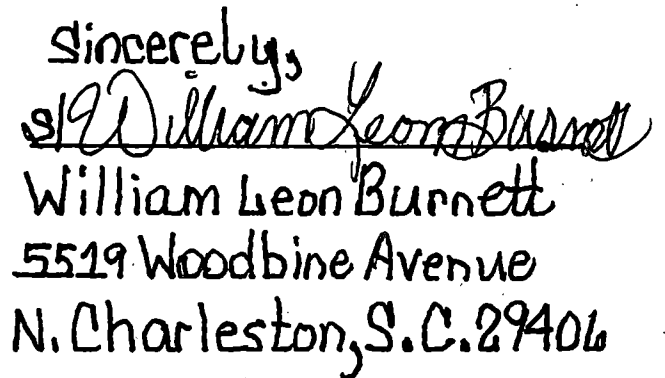 Sincerely,
s/ William Leon Burnett
William Leon Burnett
5519 Woodbine Avenue
N. Charleston, S.C. 29406